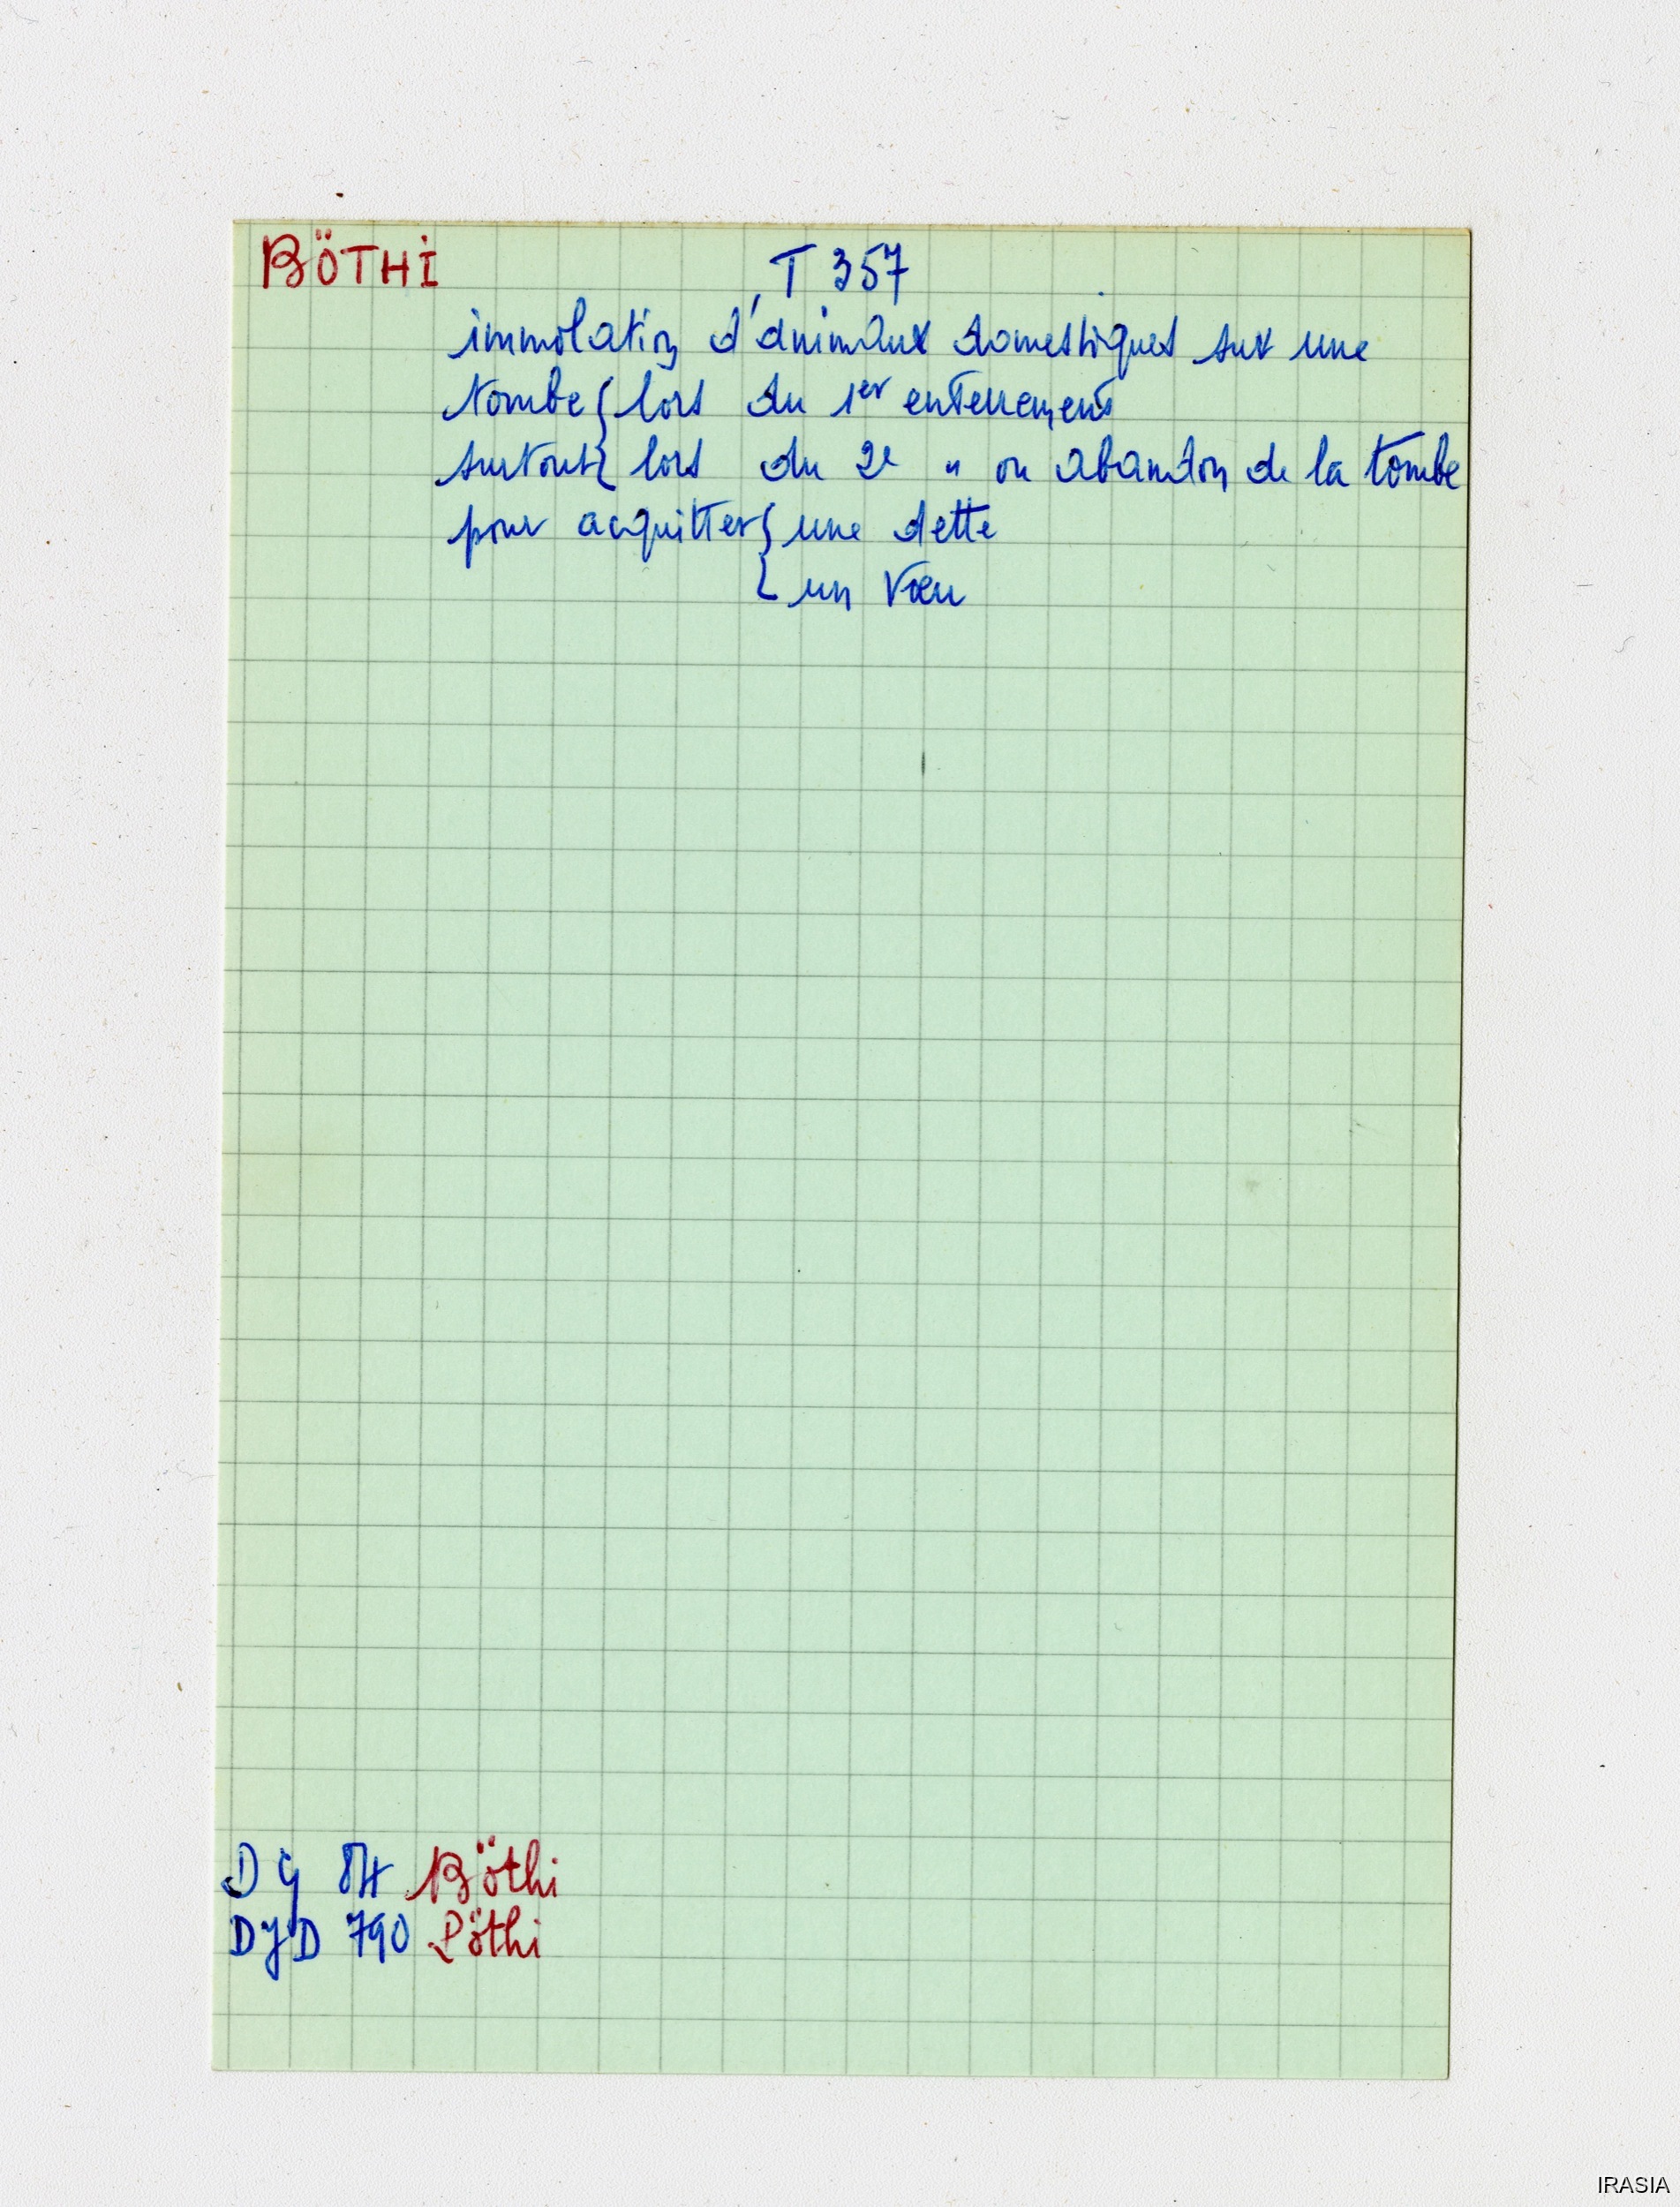 BÖTHI T 357
immolation d'animaux domestiques sur une
tombe { lors du 1er enterrement
surtout { lors du 2e " ou abandon de la tombe
pour acquitter { une dette
{ un vœu
DG 84 Böthi
DJD 790 Pöthi
IRASIA